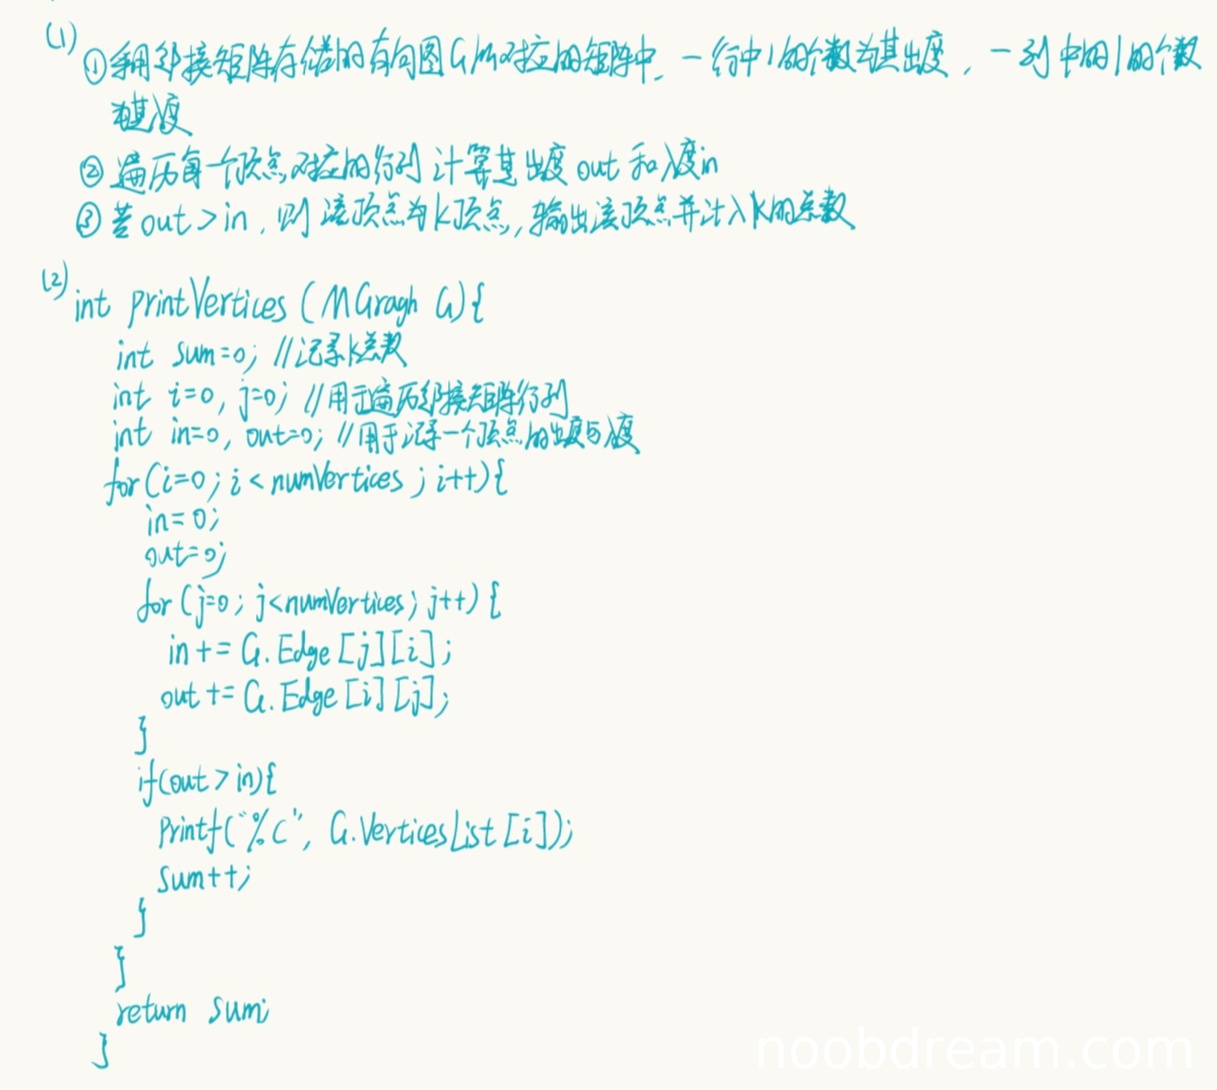 (1)
①采用邻接矩阵存储的有向图G所对应的矩阵中，一行中1的个数为其出度，一列中的1的个数
为其入度
②遍历每一个顶点对应的行列 计算其出度out和入度in
③若out>in，则该顶点为K顶点，输出该顶点并计入K的总数
(2)
int printVertices (MGragh G){
int sum=0; //记录K总数
int i=0, j=0; //用于遍历邻接矩阵行列
int in=0, out=0; //用于记录一个顶点的出度与入度
for(i=0; i<numVertices; i++){
in=0;
out=0;
for(j=0; j<numVertices; j++){
in += G.Edge[j][i];
out += G.Edge[i][j];
}
if(out>in){
printf("%c", G.VerticesList[i]);
sum++;
}
}
return sum;
}
noobdream.com